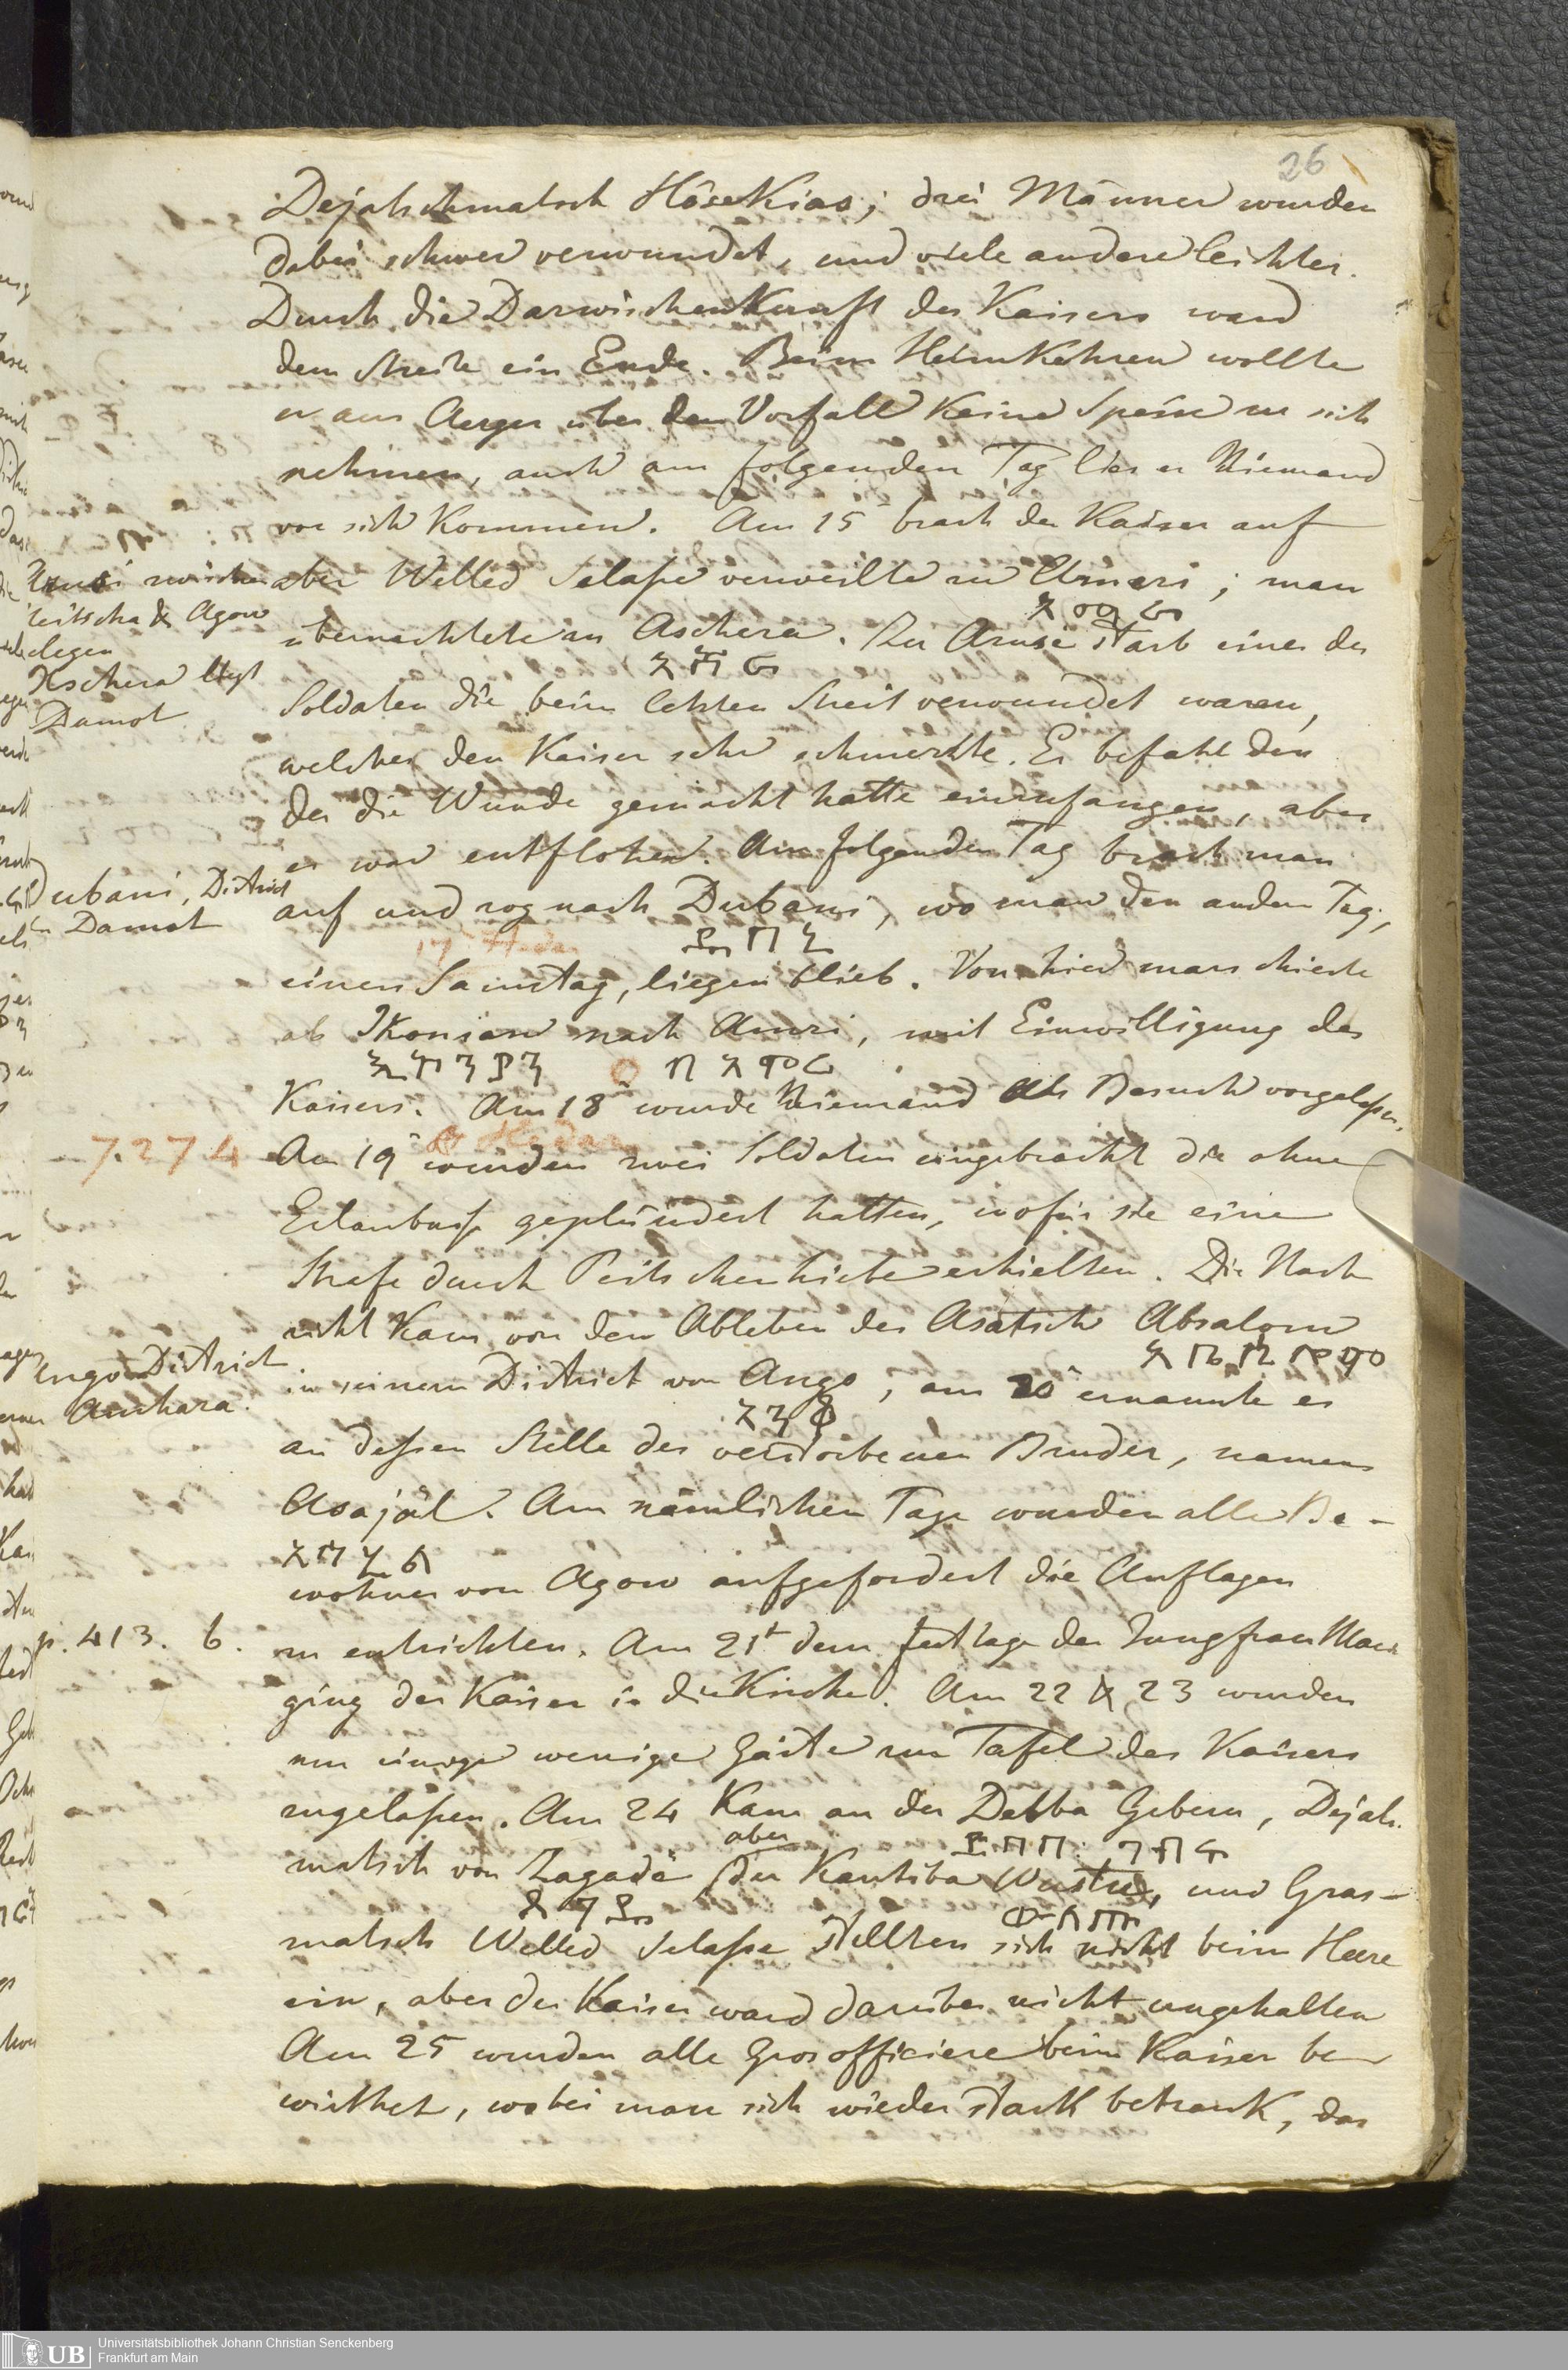 26
Dejatschmatsch Hâsekias; drei Männer wurden
dabei schwer verwundet, und viele andere leichter.
Durch die Darwischenkunft des Kaisers ward
dem Streite ein Ende. Beim Heimkehren wollte
er aus Aerger über den Vorfall keine Speise zu sich
nehmen, auch am folgenden Tag lies er Niemand
vor sich kommen. Am 15ⁿ brach der Kaiser auf
aber Welled Selasse verweilte zu Amsri; man
አመሪ
übernachtete in Aschera. Zu Amsi starb einer der
አሸራ
Soldaten die beim letzten Streit verwundet waren,
welches den Kaiser sehr schmerzte. Er befahl den
der die Wunde gemacht hatte einzufangen, aber
er war entflohen. Am folgenden Tag brach man
auf und zog nach Dubani, wo man den andern Tag,
17 Hedar
ዱባኒ
einen Samstag, liegen blieb. Von hier marschierte
ab Ikonian nach Amri, mit Einwilligung des
Kaisers. Am 18ⁿ wurde Niemand als Besuch vorgelassen.
Hedar
Am 19ⁿ wurden zwei Soldaten eingebracht die ohne
Erlaubniss geplündert hatten, wofür sie eine
Strafe durch Peitschenhiebe erhielten. Die Nach
richt kam von dem Ableben des Asatsch Absalom
in seinem District von Ango, am 20ⁿ ernannte er
አንቆ
an dessen Stelle des verstorbenen Bruder, namens
Asajêl. Am nämlichen Tage wurden alle Be-
wohner von Agow aufgefordert die Auflagen
zu entrichten. Am 21ᵗ dem Festtage der Jungfrau Mari
ging der Kaiser in die Kirche. Am 22 & 23 wurden
nur einige wenige Gäste zur Tafel des Kaisers
zugelassen. Am 24 kam an der Debba Gebern, Dejat.
aber
ደባብ ገብር
matsch von Zagadê der Kantiba Wuste, und Gras-
matsch Welled Selasse stellten sich nicht beim Heere
ein, aber der Kaiser ward darüber nicht ungehalten
Am 25 wurden alle Grosofficiere beim Kaiser be
wirthet, wobei man sich wieder stark betrank, das
zwischen
& Agow
legen
Aschera liegt
Damot
Dubani, District
in Damot
7.274
Ango District
Amhara
p. 413. b.
UB
Universitätsbibliothek Johann Christian Senckenberg
Frankfurt am Main